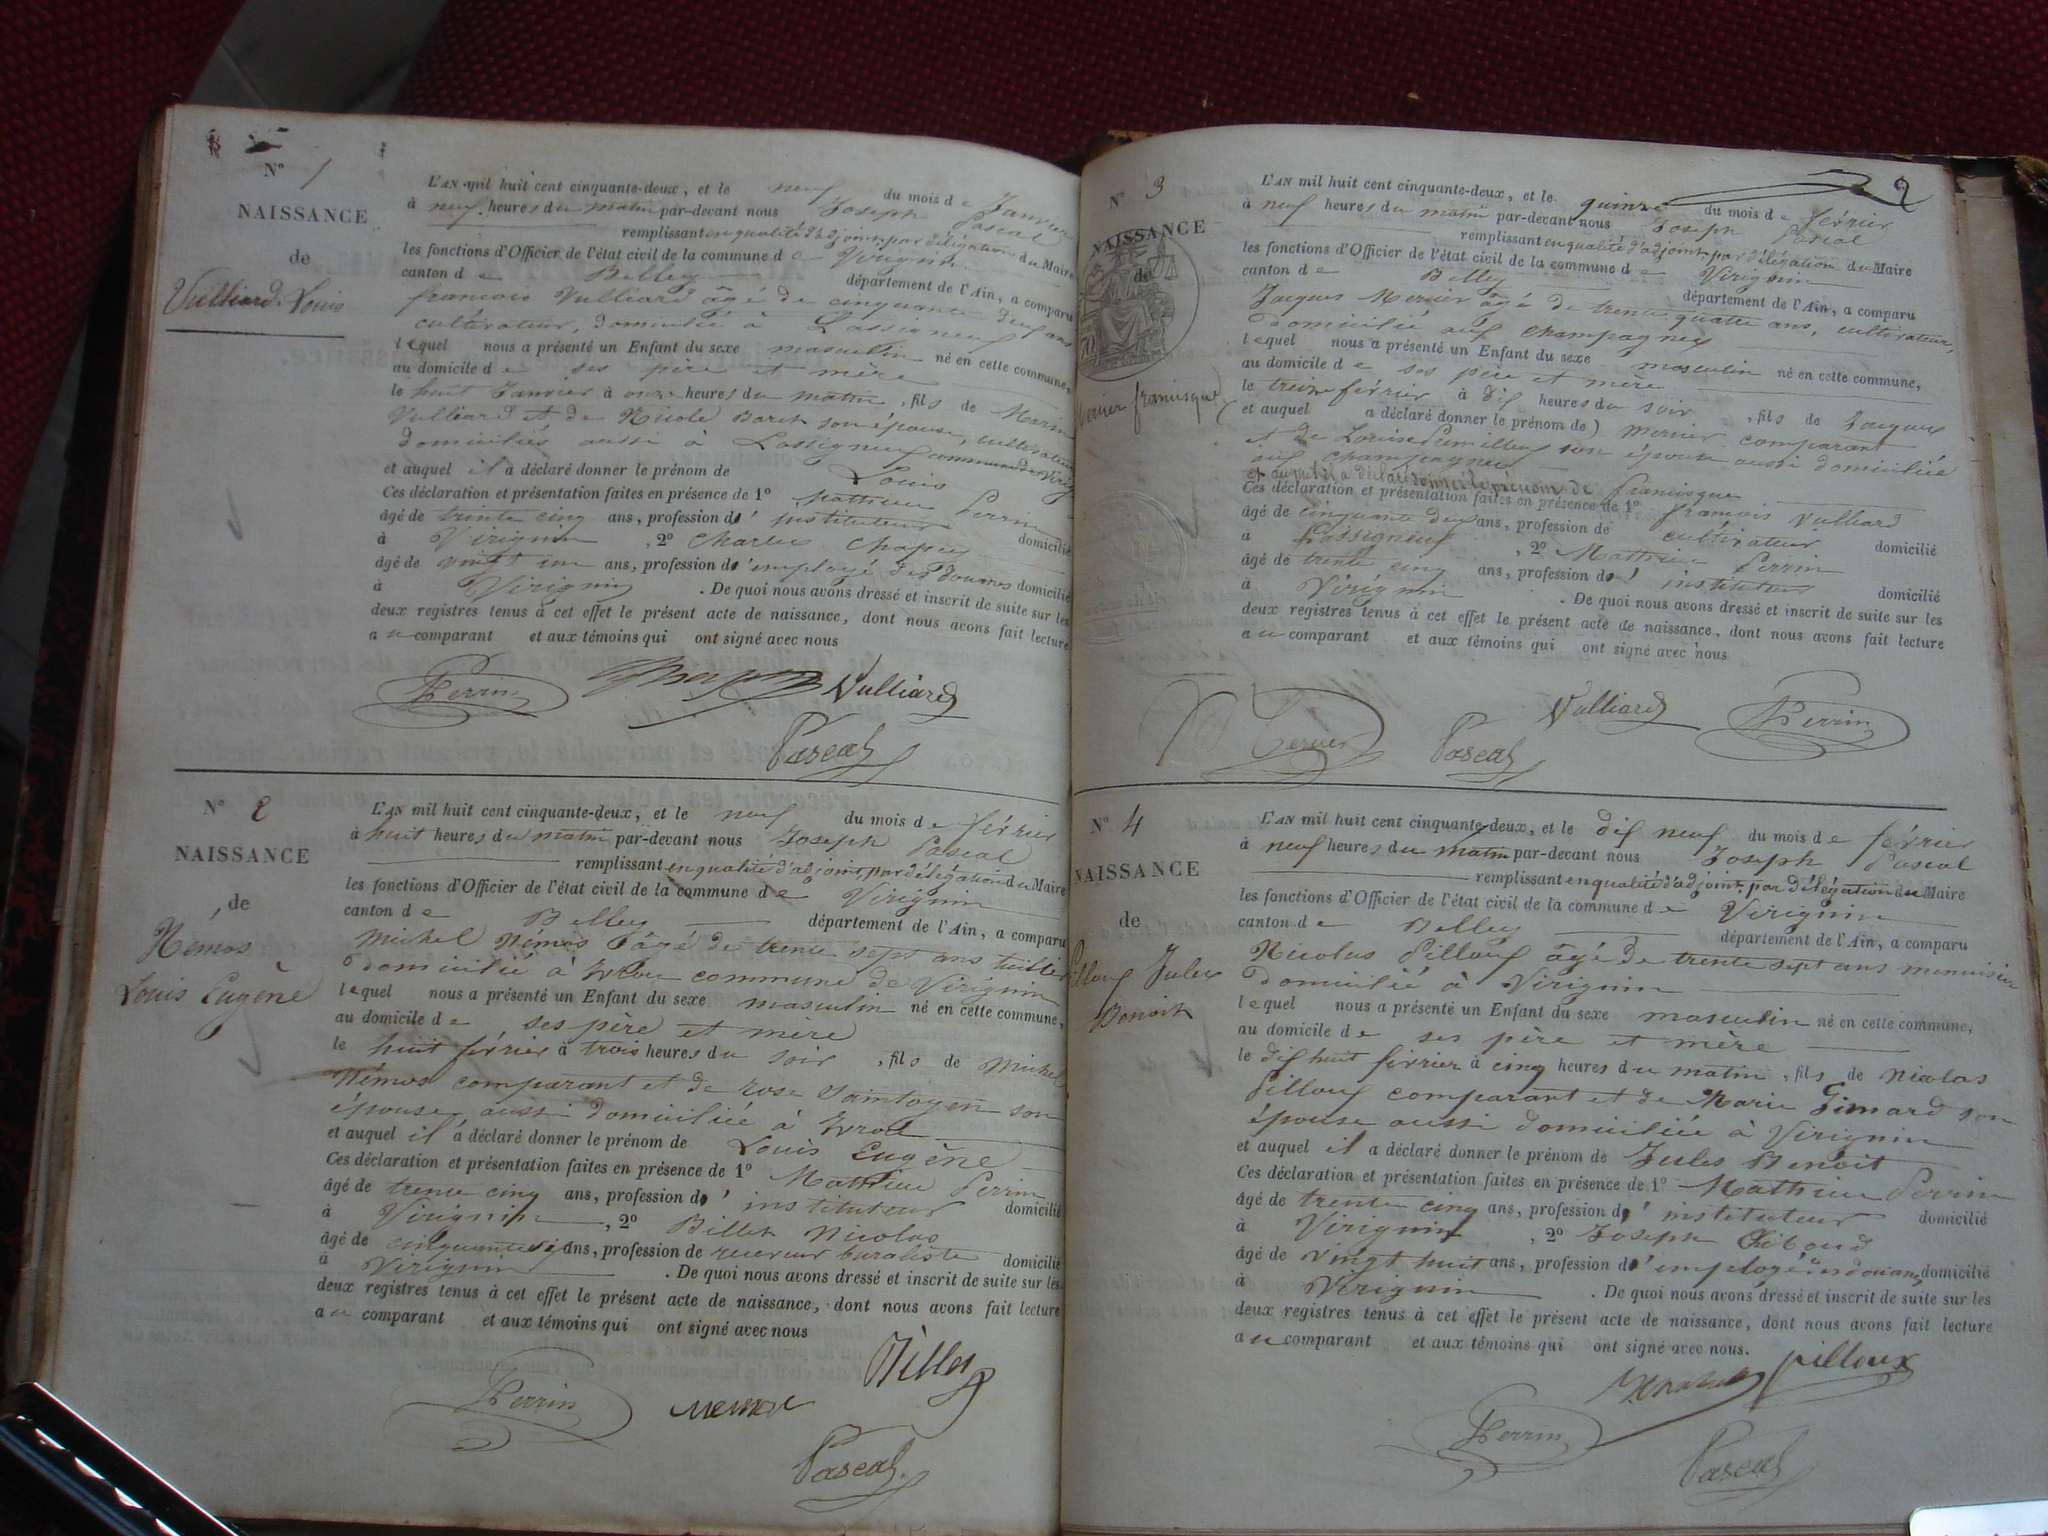 N° 1
NAISSANCE
de
Vulliard Louis
L'AN mil huit cent cinquante-deux, et le neuf du mois de Janvier
à neuf heures du matin par-devant nous Joseph Pascal
remplissant en qualité d'adjoint par délégation du Maire
les fonctions d'Officier de l'état civil de la commune de Virignin
canton de Belley département de l'Ain, a comparu
francois Vulliard âgé de cinquante deux ans
cultivateur, domicilié à Lassigneux
lequel nous a présenté un Enfant du sexe masculin né en cette commune,
au domicile de ses père et mère
le huit Janvier à onze heures du matin, fils de
Vulliard et de Nicole son épouse, cultivateurs
domiciliés aussi à Lassigneux commune de Virignin
et auquel il a déclaré donner le prénom de Louis
Ces déclaration et présentation faites en présence de 1° Mathieu Perrin
âgé de trente cinq ans, profession d' instituteur domicilié
à Virignin, 2° Charles
âgé de vingt un ans, profession d'employé des douanes domicilié
à Virignin. De quoi nous avons dressé et inscrit de suite sur les
deux registres tenus à cet effet le présent acte de naissance, dont nous avons fait lecture
au comparant et aux témoins qui ont signé avec nous
Perrin Vulliard
Pascal
N° 2
NAISSANCE
de
Némos
Louis Eugène
L'AN mil huit cent cinquante-deux, et le neuf du mois de février
à huit heures du matin par-devant nous Joseph Pascal
remplissant en qualité d'adjoint par délégation du Maire
les fonctions d'Officier de l'état civil de la commune de Virignin
canton de Belley département de l'Ain, a comparu
Michel Némos âgé de trente sept ans tuilier
domicilié à commune de Virignin
lequel nous a présenté un Enfant du sexe masculin né en cette commune,
au domicile de ses père et mere
le huit février à trois heures du soir, fils de Michel
Némos comparant et de rose son
épouse, aussi domiciliée à
et auquel il a déclaré donner le prénom de Louis Eugène
Ces déclaration et présentation faites en présence de 1° Mathieu Perrin
âgé de trente cinq ans, profession d' instituteur domicilié
à Virignin, 2° Billet Nicolas
âgé de cinquante ans, profession de receveur buraliste domicilié
à Virignin. De quoi nous avons dressé et inscrit de suite sur les
deux registres tenus à cet effet le présent acte de naissance, dont nous avons fait lecture
au comparant et aux témoins qui ont signé avec nous
Billet
Perrin
Pascal
2
N° 3
NAISSANCE
de
Mernier francisque
L'AN mil huit cent cinquante-deux, et le quinze du mois de février
à neuf heures du matin par-devant nous Joseph Pascal
remplissant en qualité d'adjoint par délégation du Maire
les fonctions d'Officier de l'état civil de la commune de Virignin
canton de Belley département de l'Ain, a comparu
Jacques Mernier âgé de trente quatre ans, cultivateur,
domicilié aux champagnes
lequel nous a présenté un Enfant du sexe masculin né en cette commune,
au domicile de ses père et mere
le treize février à dix heures du soir, fils de Jacques
et auquel a déclaré donner le prénom de) Mernier comparant
et de Louise son épouse aussi domiciliée
aux champagnes
et auquel il a déclaré donner le prénom de francisque
Ces déclaration et présentation faites en présence de 1° francois Vulliard
âgé de cinquante deux ans, profession de cultivateur domicilié
à Lassigneux, 2° Mathieu Perrin
âgé de trente cinq ans, profession d' instituteur domicilié
à Virignin. De quoi nous avons dressé et inscrit de suite sur les
deux registres tenus à cet effet le présent acte de naissance, dont nous avons fait lecture
au comparant et aux témoins qui ont signé avec nous
Vulliard Perrin
Pascal
N° 4
NAISSANCE
de
Pilloux Jules
Benoit
L'AN mil huit cent cinquante-deux, et le dix neuf du mois de février
à neuf heures du matin par-devant nous Joseph Pascal
remplissant en qualité d'adjoint par délégation du Maire
les fonctions d'Officier de l'état civil de la commune de Virignin
canton de Belley département de l'Ain, a comparu
Nicolas Pilloux âgé de trente sept ans menuisier
domicilié à Virignin
lequel nous a présenté un Enfant du sexe masculin né en cette commune,
au domicile de ses père et mère
le dix huit février à cinq heures du matin, fils de Nicolas
Pilloux comparant et de Marie Simard son
épouse aussi domiciliée à Virignin
et auquel il a déclaré donner le prénom de Jules Benoit
Ces déclaration et présentation faites en présence de 1° Mathieu Perrin
âgé de trente cinq ans, profession d' instituteur domicilié
à Virignin, 2° Joseph
âgé de vingt huit ans, profession d'employé des douanes domicilié
à Virignin. De quoi nous avons dressé et inscrit de suite sur les
deux registres tenus à cet effet le présent acte de naissance, dont nous avons fait lecture
au comparant et aux témoins qui ont signé avec nous.
pilloux
Perrin
Pascal